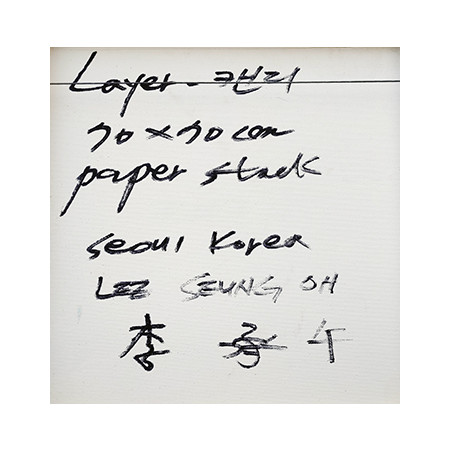 Layer -
70 x 70 cm
paper stack
Seoul Korea
LEE SEUNG OH
李 承 午